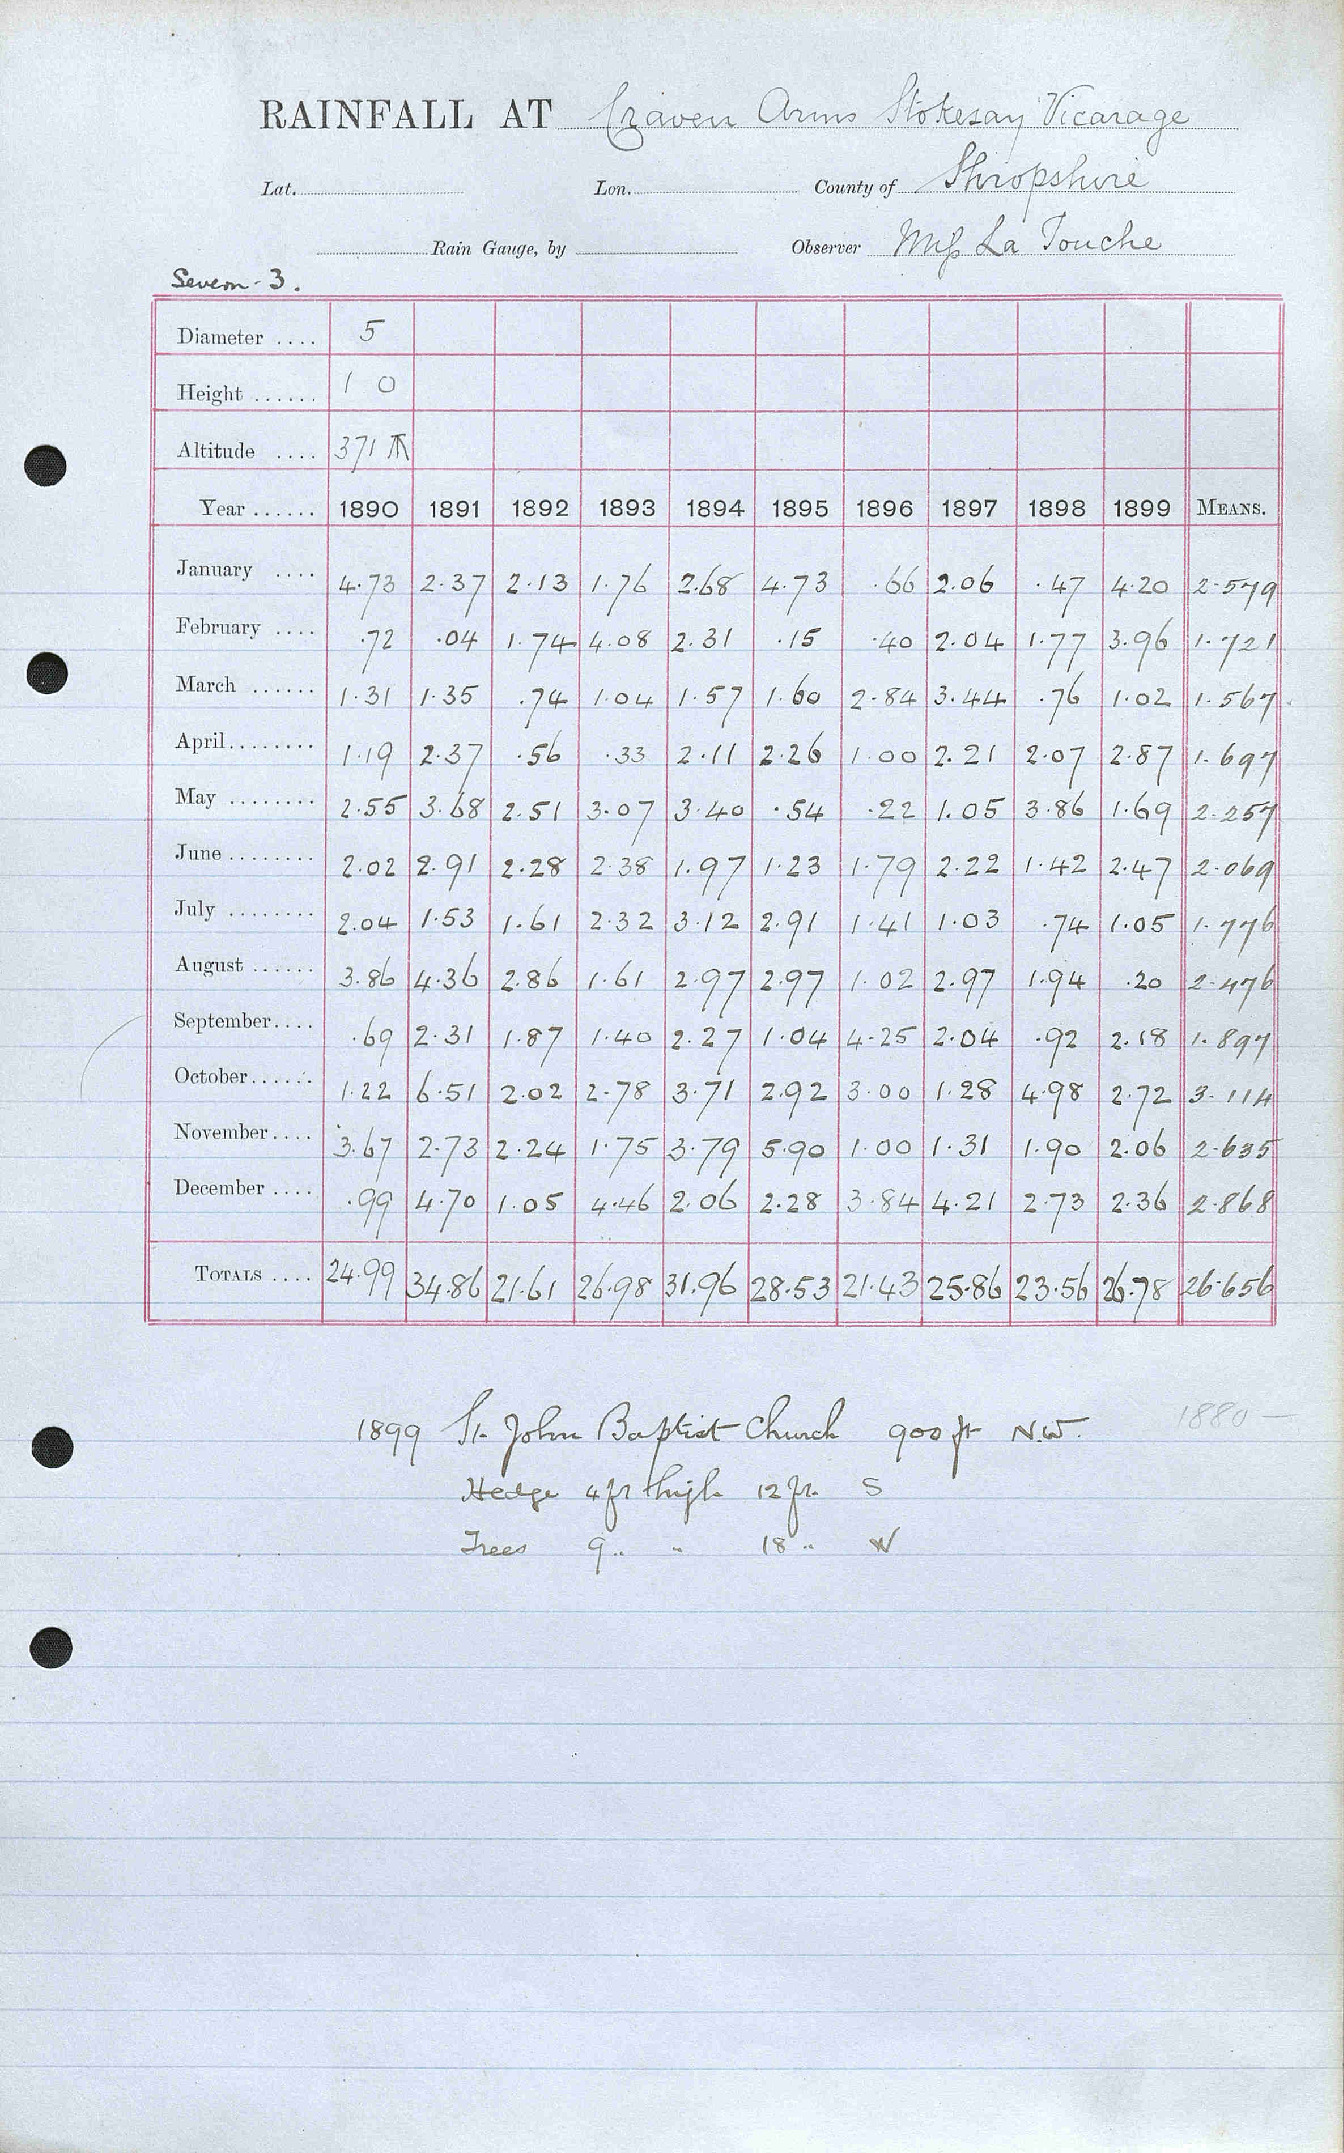 RAINFALL AT Craven Arms Stokesay Vicarage
Lat. Lon. County of Shropshire
Rain Gauge, by Observer Miss La Touche
Severn - 3.
Diameter .... 5
Height ...... 1 0
Altitude .... 371
Year ...... 1890 1891 1892 1893 1894 1895 1896 1897 1898 1899 MEANS.
January .... 4.73 2.37 2.13 1.76 2.68 4.73 .66 2.06 .47 4.20 2.579
February .... .72 .04 1.74 4.08 2.31 .15 .40 2.04 1.77 3.96 1.721
March ...... 1.31 1.35 .74 1.04 1.57 1.60 2.84 3.44 .76 1.02 1.567
April ........ 1.19 2.37 .56 .33 2.11 2.26 1.00 2.21 2.07 2.87 1.697
May ........ 2.55 3.68 2.51 3.07 3.40 .54 .22 1.05 3.86 1.69 2.257
June ........ 2.02 2.91 2.28 2.38 1.97 1.23 1.79 2.22 1.42 2.47 2.069
July ........ 2.04 1.53 1.61 2.32 3.12 2.91 1.41 1.03 .74 1.05 1.776
August ...... 3.86 4.36 2.86 1.61 2.97 2.97 1.02 2.97 1.94 .20 2.476
September .... .69 2.31 1.87 1.40 2.27 1.04 4.25 2.04 .92 2.18 1.897
October ...... 1.22 6.51 2.02 2.78 3.71 2.92 3.00 1.28 4.98 2.72 3.114
November .... 3.67 2.73 2.24 1.75 3.79 5.90 1.00 1.31 1.90 2.06 2.635
December .... .99 4.70 1.05 4.46 2.06 2.28 3.84 4.21 2.73 2.36 2.868
TOTALS .... 24.99 34.86 21.61 26.98 31.96 28.53 21.43 25.86 23.56 26.78 26.656
1899 St. John Baptist Church 900 ft N.W. 1880 —
Hedge 4 ft high 12 ft. S
Trees 9 " " 18 " W